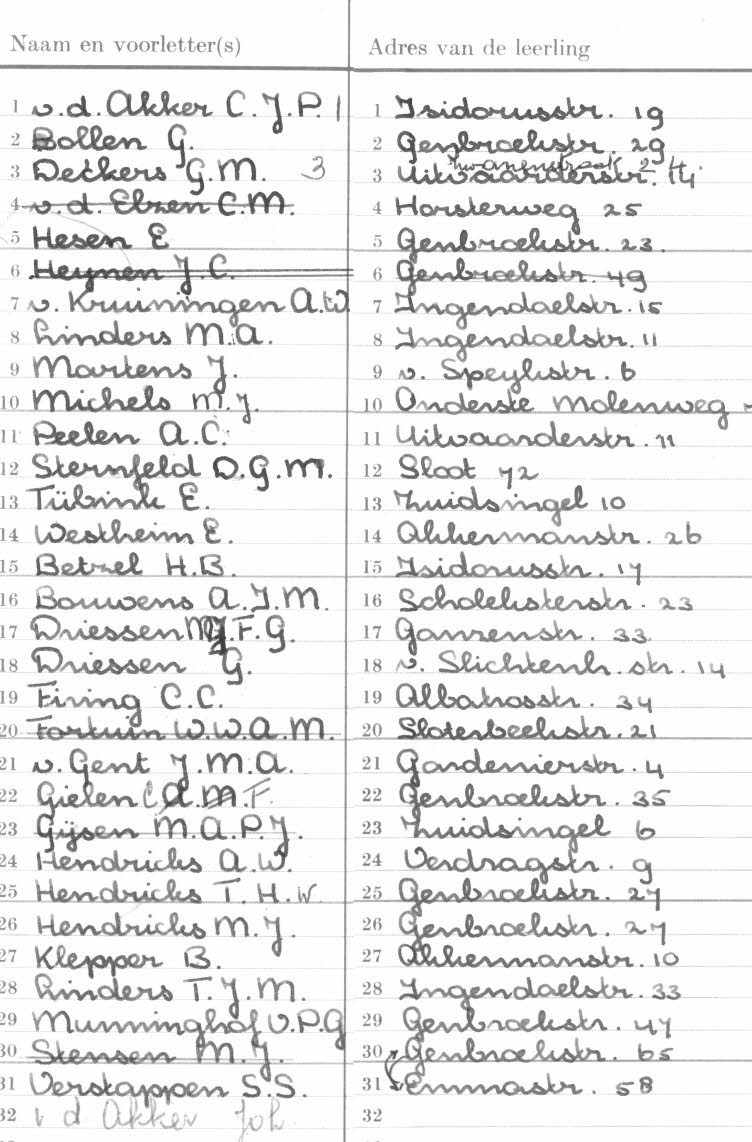 Naam en voorletter(s) Adres van de leerling
1 v.d. Akker C.J.P. 1 Isidorusstr. 19
2 Bollen G. 2 Genbroekstr. 29
3 Deckers G.M. 3 3 Uitwaarderstr. 24
4 v.d. Elzen C.M. 4 Horsterweg 25
5 Hesen E 5 Genbroekstr. 23.
6 Heynen J.C. 6 Genbroekstr. 49
7 v. Kruiningen A.W. 7 Ingendaelstr. 15
8 Linders M.A. 8 Ingendaelstr. 11
9 Martens J. 9 v. Speykstr. 6
10 Michels M.J. 10 Onderste Molenweg
11 Peelen A.C. 11 Uitwaarderstr. 11
12 Sternfeld D.G.M. 12 Sloot 72
13 Tübink E. 13 Zuidsingel 10
14 Westheim E. 14 Akkermanstr. 26
15 Betzel H.B. 15 Isidorusstr. 17
16 Bouwens A.J.M. 16 Scholeksterstr. 23
17 Driessen M.J.F.G. 17 Ganzenstr. 33
18 Driessen G. 18 v. Slichtenh. str. 14
19 Firing C.C. 19 Albatrosstr. 34
20 Fortuin W.W.A.M. 20 Slotenbeekstr. 21
21 v. Gent J.M.A. 21 Gardenierstr. 4
22 Gielen C.A.M.F. 22 Genbroekstr. 35
23 Gijsen M.A.P.J. 23 Zuidsingel 6
24 Hendricks A.W. 24 Verdragstr. 9
25 Hendricks T.H.W. 25 Genbroekstr. 27
26 Hendricks M.J. 26 Genbroekstr. 27
27 Klepper B. 27 Akkermanstr. 10
28 Linders T.J.M. 28 Ingendaelstr. 33
29 Munninghof V.P.G 29 Genbroekstr. 47
30 Stensen M.J. 30 Genbroekstr. 65
31 Verstappen S.S. 31 Emmastr. 58
32 v d Akker Joh. 32